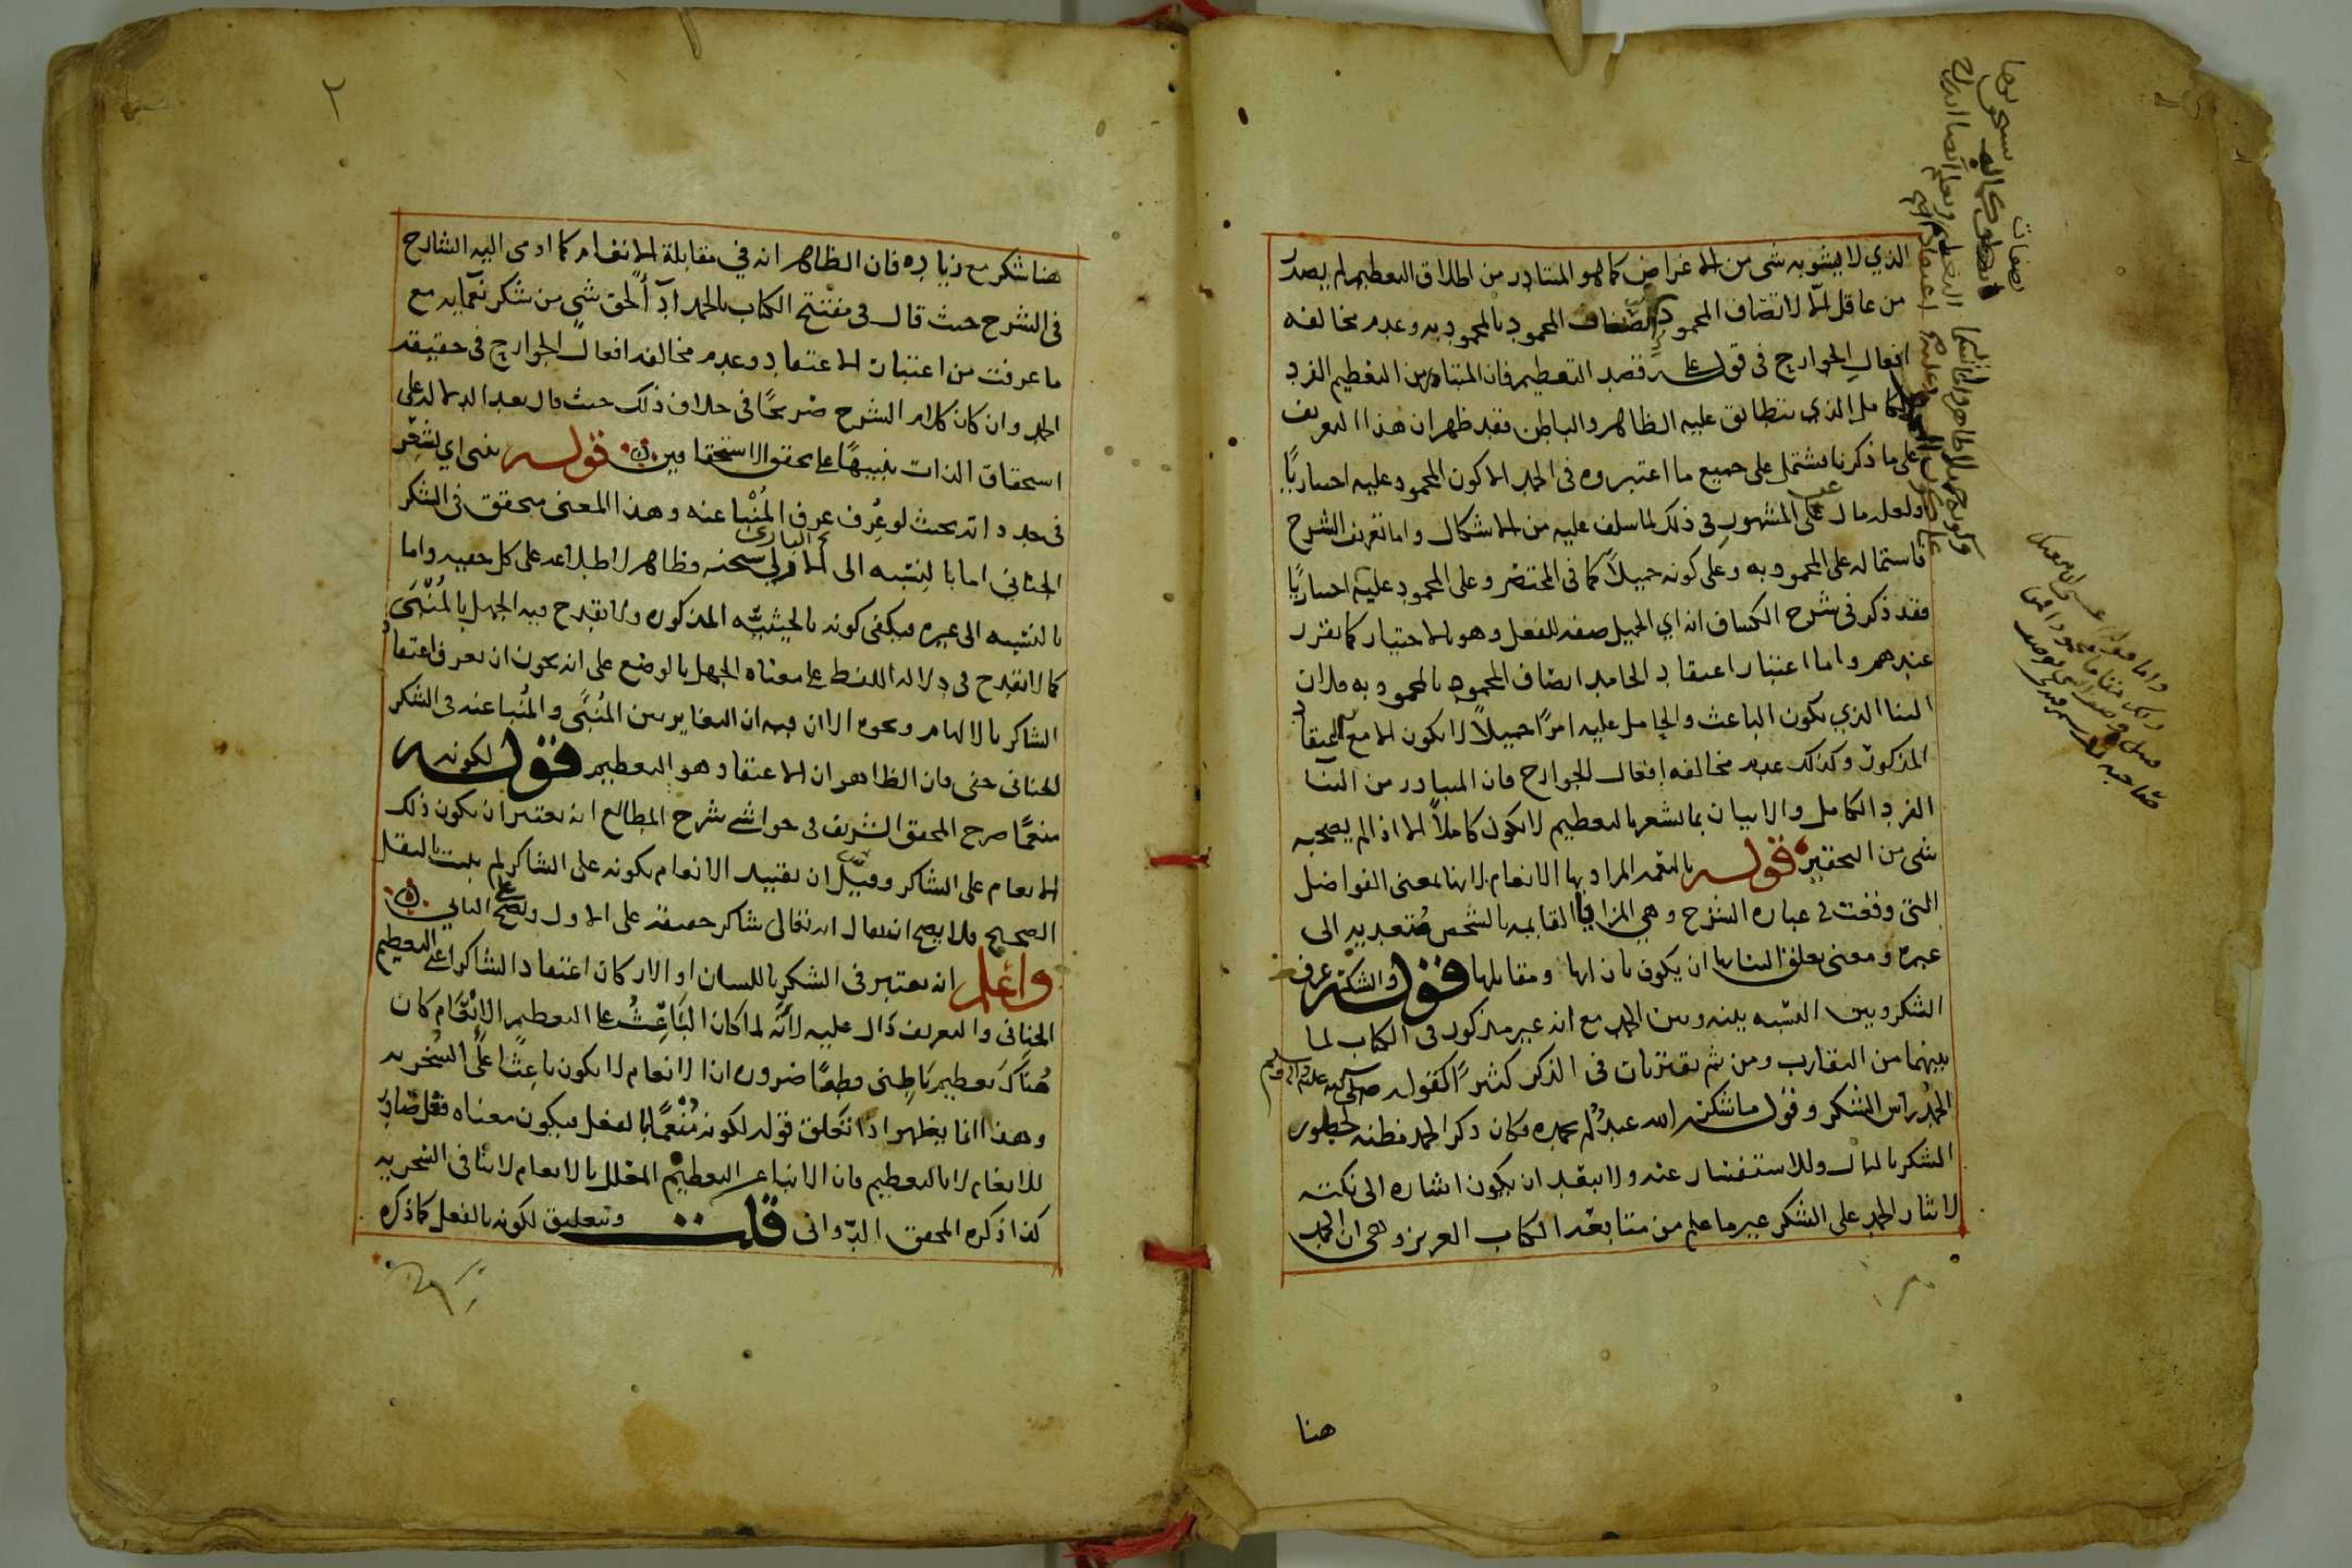 الذي لا يشوبه شي من الاغراض كما هو المتبادر من اطلاق التعظيم لم يصدر
من عاقل الا لاتصاف المحمود بالمحمود به وعدم مخالفة
افعال الجوارح في قوله على قصد التعظيم فان المتبادر من التعظيم الفرد
الكامل الذي يتطابق عليه الظاهر والباطن فقد ظهر ان هذا التعريف
على ما ذكرنا مشتمل على جميع ما اعتبروه في الحمد الا كون المحمود عليه اختياريًا
ولعله مال عن المشهور في ذلك لما سلف عليه من الاشكال واما تعريف الشرح
فاشتماله على المحمود به وعلى كونه جميلاً كما في المختصر وعلى المحمود عليه اختياريًا
فقد ذكر في شرح الكشاف انه اي الجميل صفة للفعل وهو بالاختيار كما تقرر
عندهم واما اعتبار اعتقاد الحامد اتصاف المحمود بالمحمود به فلان
الثنا الذي يكون الباعث والحامل عليه امرًا جميلاً لا يكون الا مع اعتقاد
المذكور وكذلك عدم مخالفه افعال الجوارح فان المتبادر من الثنا
الفرد الكامل والاتيان بما يشعر بالتعظيم لا يكون كاملاً الا اذا لم يصحبه
شي من التحقير قوله بالنعمه المراد بها الانعام لانها بمعنى الفواضل
التي وقعت في عباره الشرح وهي المزايا القايمه بالشخص متعديه الى
غيره ومعنى تعلق الثنا بها ان يكون بازائها ومقابلها قوله والشكر عرف
الشكر وبين النسبه بينه وبين الحمد مع انه غير مذكور في الكتاب لما
بينهما من التقارب ومن ثم يقترنان في الذكر كثيرًا كقوله صلى الله عليه واله وسلم
الحمد راس الشكر وقوله ما شكر الله عبد لم يحمده فكان ذكر الحمد مظنه لخطور
الشكر بالبال وللاستفسار عنه ولا يبعد ان يكون اشاره الى نكته
لايثار الحمد على الشكر غير ما علم من متابعة الكتاب العزيز وهي ان الحمد
هنا
٢
هنا شكر مع زياده فان الظاهر انه في مقابلة الانعام كما اومى اليه الشارح
في الشرح حيث قال في مفتتح الكتاب بالحمد ادآ لحق شي من شكر نعمايه مع
ما عرفت من اعتبار الاعتقاد وعدم مخالفه افعال الجوارح في حقيقة
الحمد وان كان كلام الشرح صريحًا في خلاف ذلك حيث قال بعد الدلاله على
استحقاق الذات تنبيهًا على تحقق الاستحقاقين قوله ينبي اي يشعر
في حد ذاته بحيث لو عُرِف عرف المُنْبا عنه وهذا المعنى متحقق في الشكر
الجناني اما بالنسبه الى الباري سبحنه فظاهر لاطلاعه على كل خفيه واما
بالنسبه الى غيره فيكفي كونه بالحيثيه المذكوره ولا يقدح فيه الجهل بالمُنْبَى
كما لا يقدح في دلاله اللفظ على معناه الجهل بالوضع على انه يجوز ان يعرف اعتقاد
الشاكر بالالهام ونحوه الا ان فيه ان التغاير بين المُنبى والمُنبا عنه في الشكر
الجناني خفي فان الظاهر ان الاعتقاد هو التعظيم قوله لكونه
منعمًا صرح المحقق الشريف في حواشي شرح المطالع انه يعتبر ان يكون ذلك
الانعام على الشاكر وقيل ان تقييد الانعام بكونه على الشاكر لم يثبت بالنقل
الصحيح فلا يصح ان يقال الله تعالى شاكر حقيقة على الاول ويصح على الثاني
واعلم انه يعتبر في الشكر باللسان او الاركان اعتقاد الشاكر اعني التعظيم
الجناني والتعريف دال عليه لانه لما كان البَاعِثُ على التعظيم الانعام كان
هُنَاكَ تعظيم بَاطِني قطعًا ضروره ان الانعام لا يكون باعِثًا على السخريه
وهذا انما يظهر اذا تعلق قوله لكونه مُنْعِمًا بالفعل فيكون معناه فعل صادر
للانعام لا بالتعظيم فان الانبا عن التعظيم المعلل بالانعام لا ينافي السخريه
كذا ذكره المحقق الدواني قلت وتعليق لكونه بالفعل كما ذكره